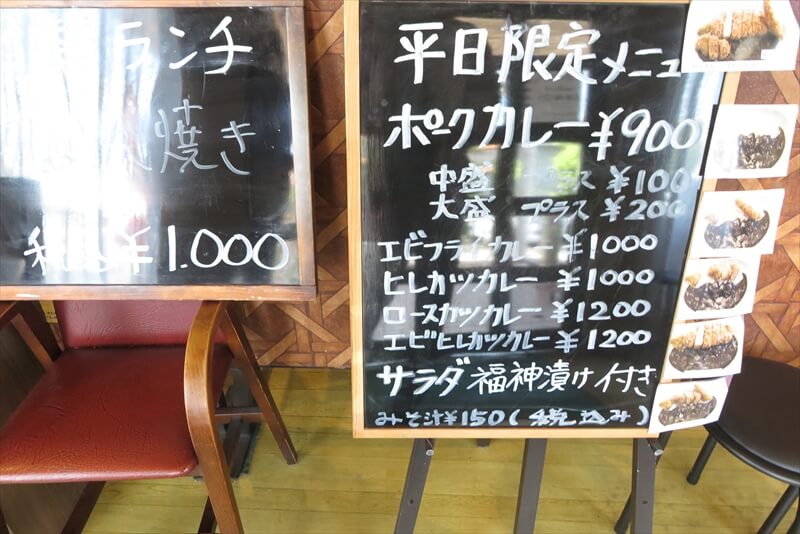 ランチ
焼き
税込¥1.000
平日限定メニュー
ポークカレー¥900
中盛 プラス ¥100
大盛 プラス ¥200
エビフライカレー ¥1000
ヒレカツカレー ¥1000
ロースカツカレー ¥1200
エビヒレカツカレー ¥1200
サラダ 福神漬け付き
みそ汁¥150(税込み)